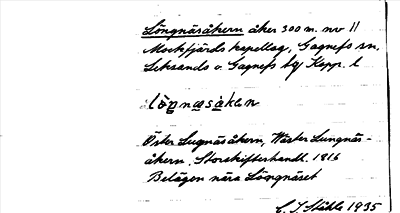 Löngnäsåkern åker 300 m. nv //
Mockfjärds kapellag, Gagnefs sn,
Leksands o. Gagnefs tg Kopp. l
löŋnæsåken
Öster Lugnäsåkern, Wäster Lungnäs-
åkern. Storskifteshandl. 1816
Belägen nära Löngnäset
C. J. Ståhle 1935